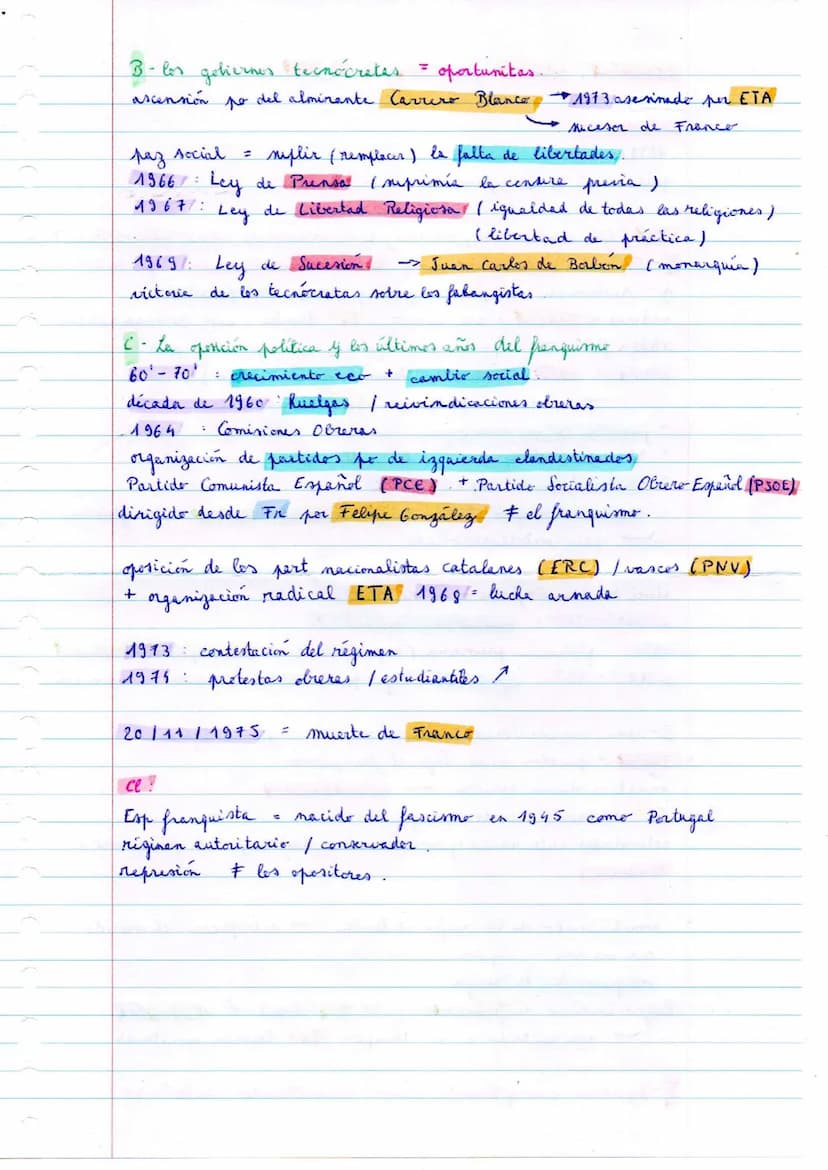 B - los gobiernos tecnócratas = oportunitas.
ascensión po del almirante Carrero Blanco, → 1973 asesinado por ETA
→ sucesor de Franco
paz social = suplir (remplacer) la falta de libertades.
1966 : Ley de Prensa (suprimía la censura previa)
1967 : Ley de Libertad Religiosa (igualdad de todas las religiones)
(libertad de práctica)
1969 : Ley de Sucesión → Juan Carlos de Borbón (monarquía)
victoria de los tecnócratas sobre los fabangistas
C - La oposición política y los últimos años del franquismo
60' - 70' : crecimiento eco + cambio social.
década de 1960 : Huelgas / reivindicaciones obreras
1964 : Comisiones Obreras
organización de partidos po de izquierda clandestinados
Partido Comunista Español (PCE) + Partido Socialista Obrero Español (PSOE)
dirigido desde Fr por Felipe González ≠ el franquismo.
oposición de los part nacionalistas catalanes (ERC) / vascos (PNV)
+ organización radical ETA 1968 = lucha armada
1973 : contestación del régimen
1974 : protestas obreras / estudiantiles ↗
20 / 11 / 1975 = muerte de Franco
Cl :
Esp franquista = nacido del fascismo en 1945 como Portugal
régimen autoritario / conservador.
represión ≠ los opositores.